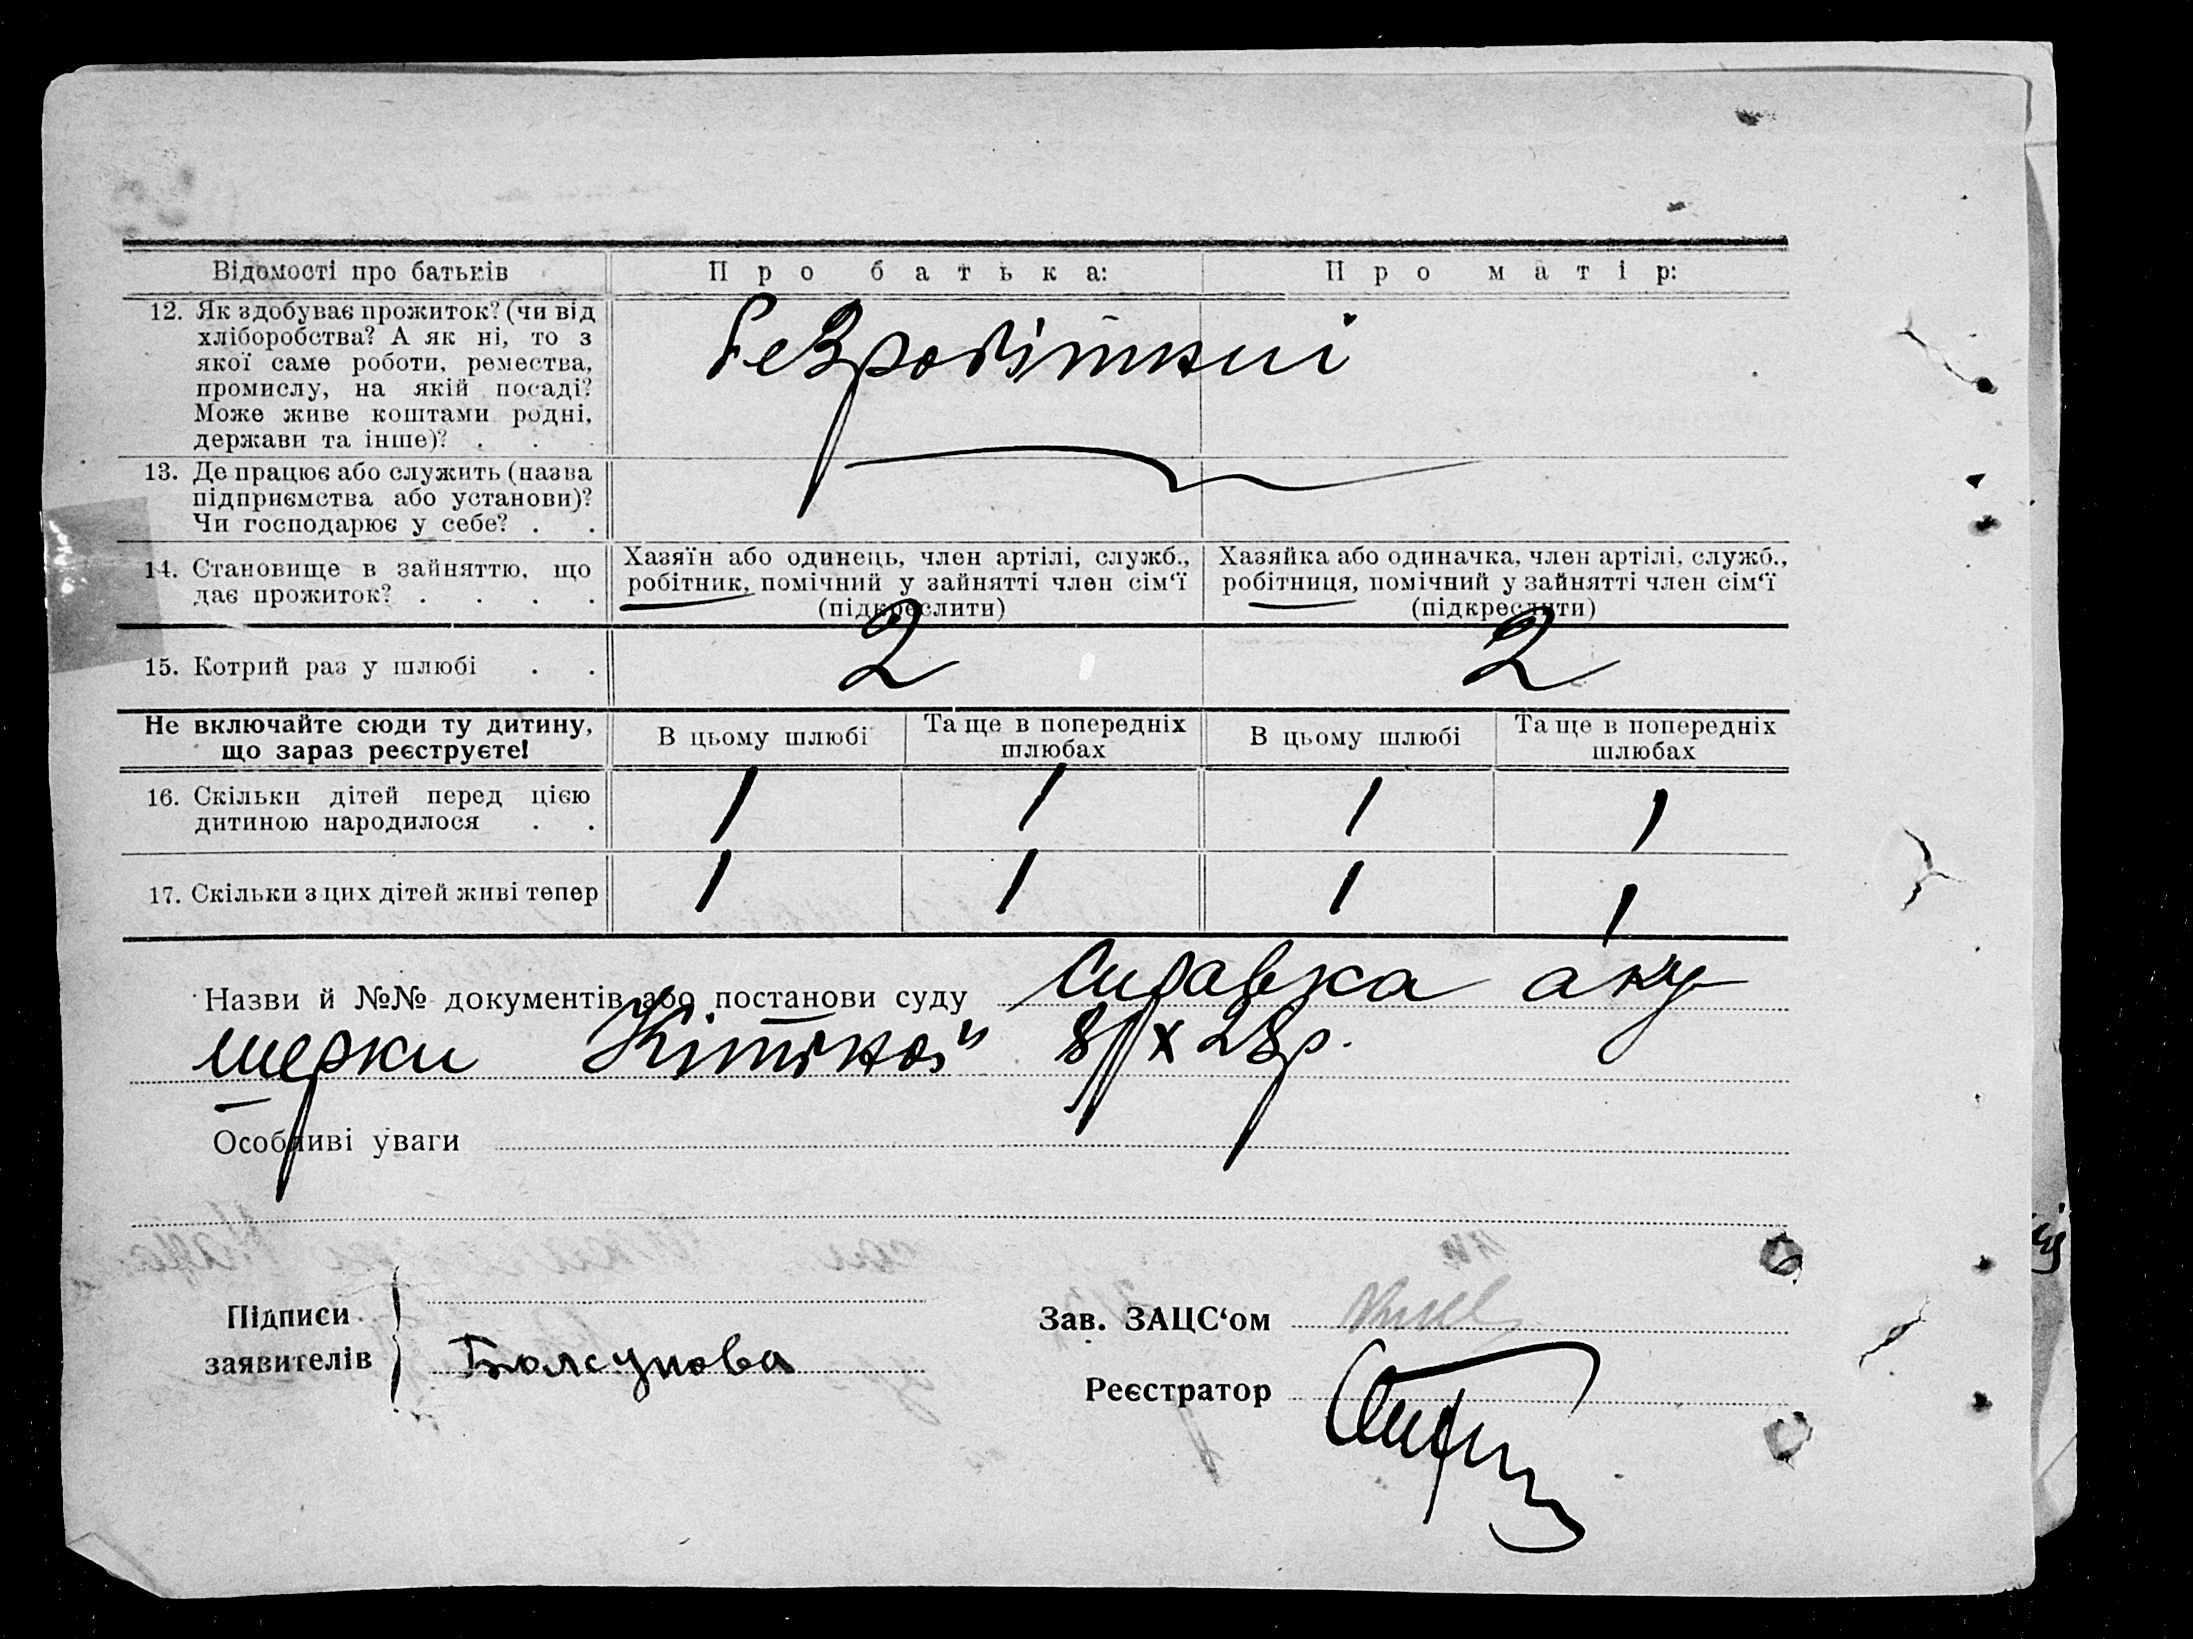 Відомості про батьків
Про батька:
Про матір:
12. Як здобуває прожиток? (чи від
хліборобства? А як ні, то з
якої саме роботи, ремества,
промислу, на якій посаді?
Може живе коштами родні,
держави та інше)? . . .
безробітниі
13. Де працює або служить (назва
підприємства або установи)?
Чи господарює у себе? . .
14. Становище в зайняттю, що
дає прожиток? . . . .
Хазяїн або одинець, член артілі, служб.,
робітник, помічний у зайнятті член сім‘ї
(підкреслити)
Хазяйка або одиначка, член артілі, служб.,
робітниця, помічний у зайнятті член сім‘ї
(підкреслити)
15. Котрий раз у шлюбі . .
2
2
Не включайте сюди ту дитину,
що зараз реєструєте!
В цьому шлюбі
Та ще в попередніх
шлюбах
В цьому шлюбі
Та ще в попередніх
шлюбах
16. Скільки дітей перед цією
дитиною народилося . .
1 1 1 1
17. Скільки з цих дітей живі тепер
1 1 1 1
Назви й №№ документів або постанови суду справка аку
шерки 8/X 28р.
Особливі уваги
Підписи
заявителів
Болсунова
Зав. ЗАЦС‘ом
Реєстратор